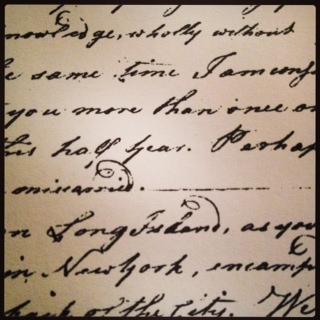 knowledge, wholly without
same time I am
you more than once
this half year. Perhap
miscarried.
on Long Island, as you
in New York, encamp
of the City. We